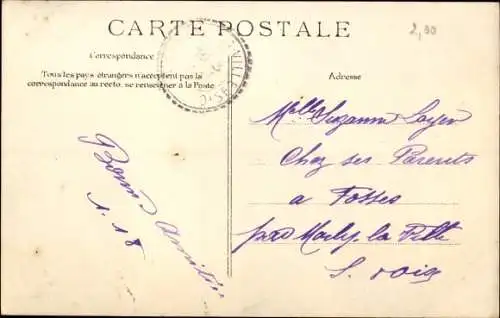 CARTE POSTALE
2,30
Correspondance
Tous les pays étrangers n'acceptent pas la
correspondance au recto, se renseigner à la Poste
Adresse
VILLIERS
Bonne Amitié
1. 18
Melle Suzanne
Chez ses Parents
a Fosses
par Marly la Ville
S. oise